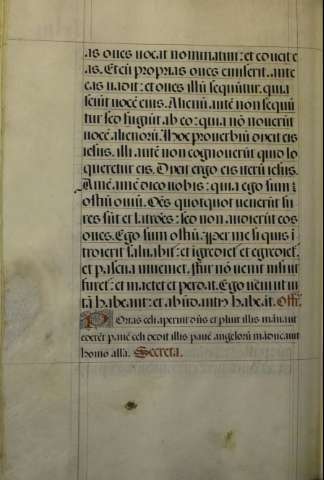 as oues uocat nominatim: et educit e
as. Et cū proprias oues emiserit. ante
eas uadit: et oues illū sequūtur. quia
sciūt uocē eius. Alienū autē non sequū
tur sed fugiūt ab eo: quia nō nouerūt
uocē alienorū. Hoc prouerbiū dixit eis
iesus. illi autē non cognouerūt quid lo
queretur eis. Dixit ergo eis iterū iesus.
Amē amē dico uobis: quia ego sum
ostiū ouiū. Oēs quotquot uenerūt fu
res sūt et latrōes: sed non audierūt eos
oues. Ego sum ostiū. Per me si quis i
troierit saluabit: et igrediet et egrediet.
et pascua inueniet. fur nō uenit nisi ut
furet: et mactet et perdat. Ego ueni ut ui
tā habeant: et abūdantiꝰ habeāt. Offr̄.
Portas celi aperuit dn̄s et pluit illis māna ut
ederēt panē celi dedit illis panē angelorū māducauit
homo alla. Secreta.